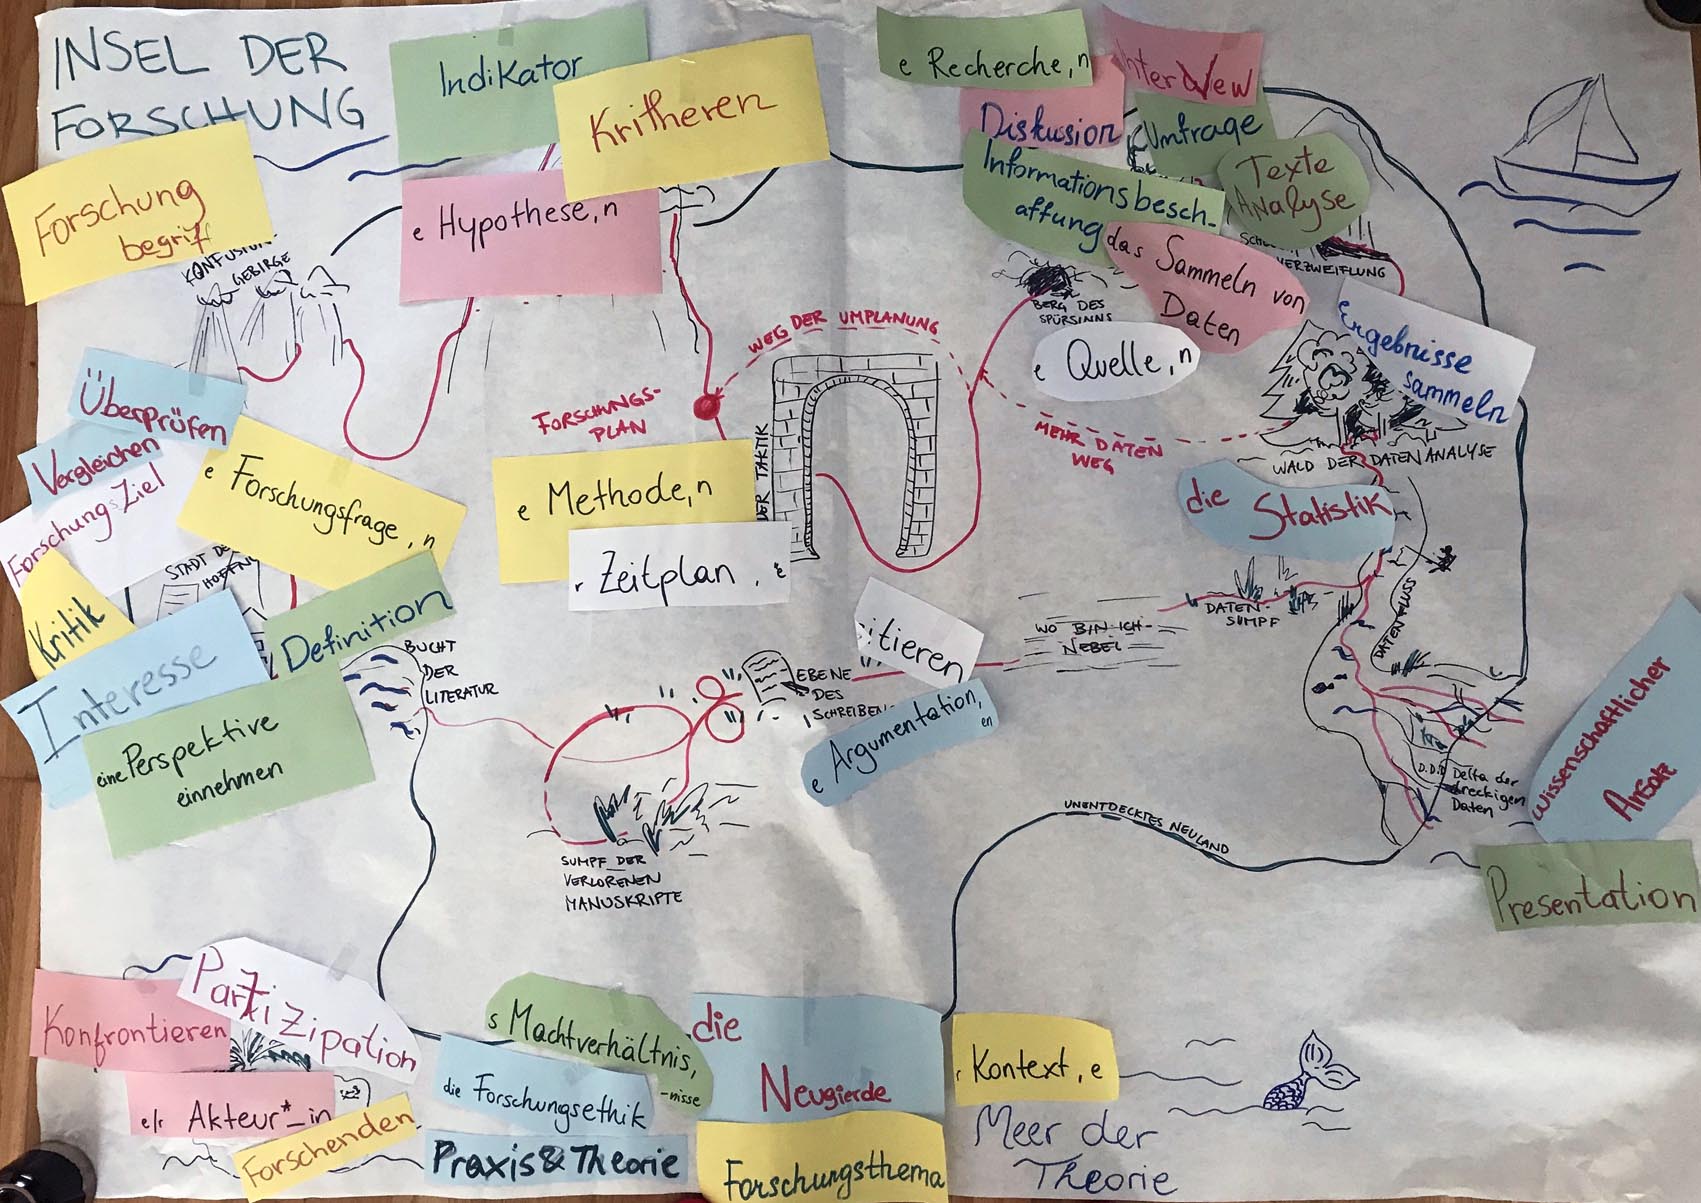 INSEL DER
FORSCHUNG
Indikator
Kritheren
e Recherche,n
Interview
Diskusion
Umfrage
Informationsbesch-
affung
Texte
Analyse
das Sammeln von
Daten
VERZWEIFLUNG
Forschung
begrif
KONFUSION
GEBIRGE
e Hypothese,n
WEG DER UMPLANUNG
BERG DES
SPÜRSINNS
e Quelle,n
Ergebnisse
sammeln
Überprüfen
Vergleichen
Forschungsziel
e Forschungsfrage,n
FORSCHUNGS-
PLAN
DER TAKTIK
MEHR DATEN
WEG
WALD DER DATENANALYSE
e Methode,n
r Zeitplan, e
die Statistik
STADT DE
HOFFN
Kritik
Definition
Interesse
eine Perspektive
einnehmen
BUCHT
DER
LITERATUR
EBENE
DES
SCHREIBEN
itieren
e Argumentation,
en
WO BIN ICH-
NEBEL
DATEN-
SUMPF
DATENFLUSS
D.D.D Delta der
dreckigen
Daten
wissenschaftlicher
Ansatz
Presentation
UNENTDECKTES NEULAND
SUMPF DER
VERLORENEN
MANUSKRIPTE
Konfrontieren
Partizipation
e/r Akteur*_in
Forschenden
s Machtverhältnis,
-nisse
die Forschungsethik
Praxis & Theorie
die
Neugierde
Forschungsthema
r Kontext, e
Meer der
Theorie